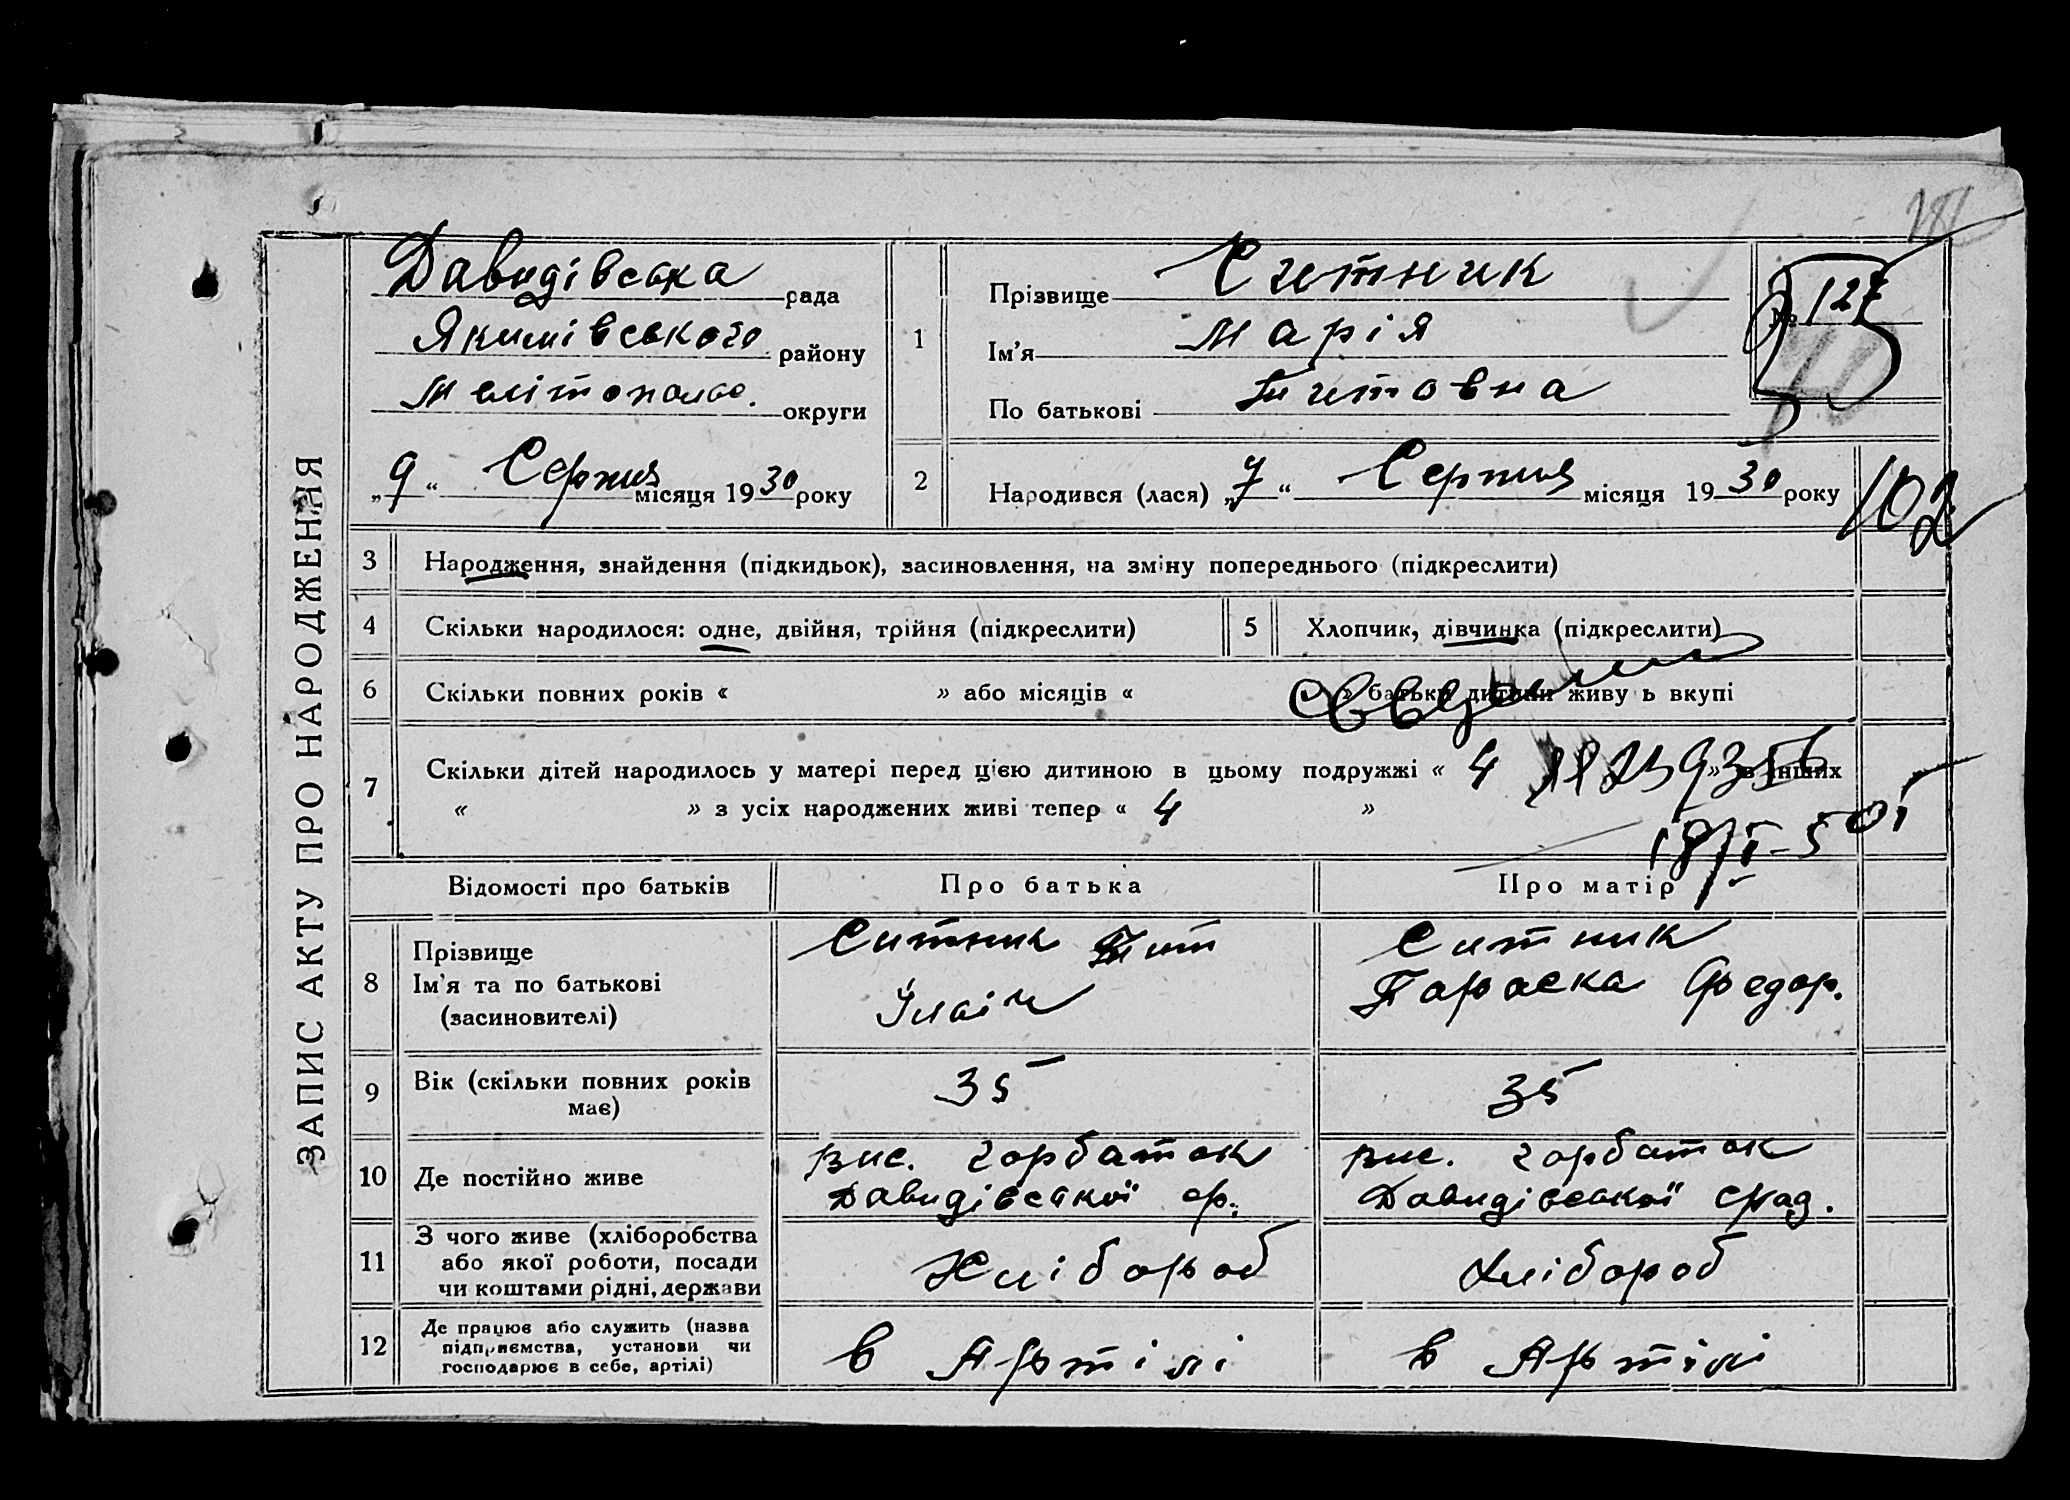 ЗАПИС АКТУ ПРО НАРОДЖЕННЯ
Давидівська рада
Якимівського району
Мелітопольс. округи
„9“ Серпня місяця 1930 року
1 Прізвище Ситник
Ім'я Марія
По батькові Титовна
№ 127
2 Народився (лася) „7“ Серпня місяця 1930 року
102
3 Народження, знайдення (підкидьок), засиновлення, на зміну попереднього (підкреслити)
4 Скільки народилося: одне, двійня, трійня (підкреслити)
5 Хлопчик, дівчинка (підкреслити)
6 Скільки повних років « » або місяців « » батьки дитини живуть вкупі
7 Скільки дітей народилось у матері перед цією дитиною в цьому подружжі « 4 » в інших
« » з усіх народжених живі тепер « 4 »
Відомості про батьків
Про батька
Про матір
8 Прізвище
Ім'я та по батькові
(засиновителі)
Ситник Тит
Ілліч
Ситник
Параска Федор.
9 Вік (скільки повних років
має)
35
35
10 Де постійно живе
вис. Горбаток
Давидівської ср.
вис. Горбаток
Давидівської срад.
11 З чого живе (хліборобства
або якої роботи, посади
чи коштами рідні, держави
Хлібороб
Хлібороб
12 Де працює або служить (назва
підприємства, установи чи
господарює в себе, артілі)
в Артілі
в Артілі